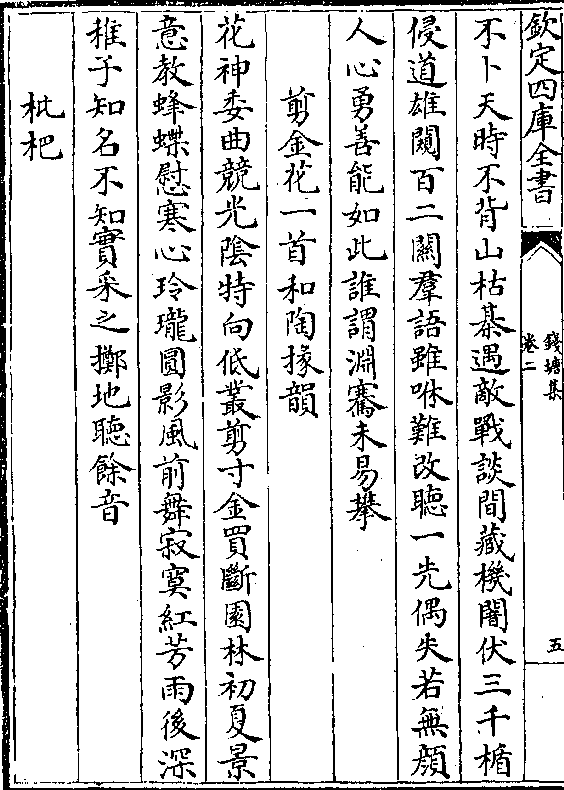 欽定四庫全書
錢塘集
卷二
五
不卜天時不背山枯棊遇敵戰談間藏機闇伏三千楯
侵道雄關百二關羣語雖咻難改聽一先偶失若無顔
人心勇善能如此誰謂淵騫未易攀
剪金花一首和陶掾韻
花神委曲競光陰特向低叢剪寸金買斷園林初夏景
意教蜂蝶慰寒心玲瓏圓影風前舞寂寞紅芳雨後深
稚子知名不知實采之擲地聽餘音
枇杷